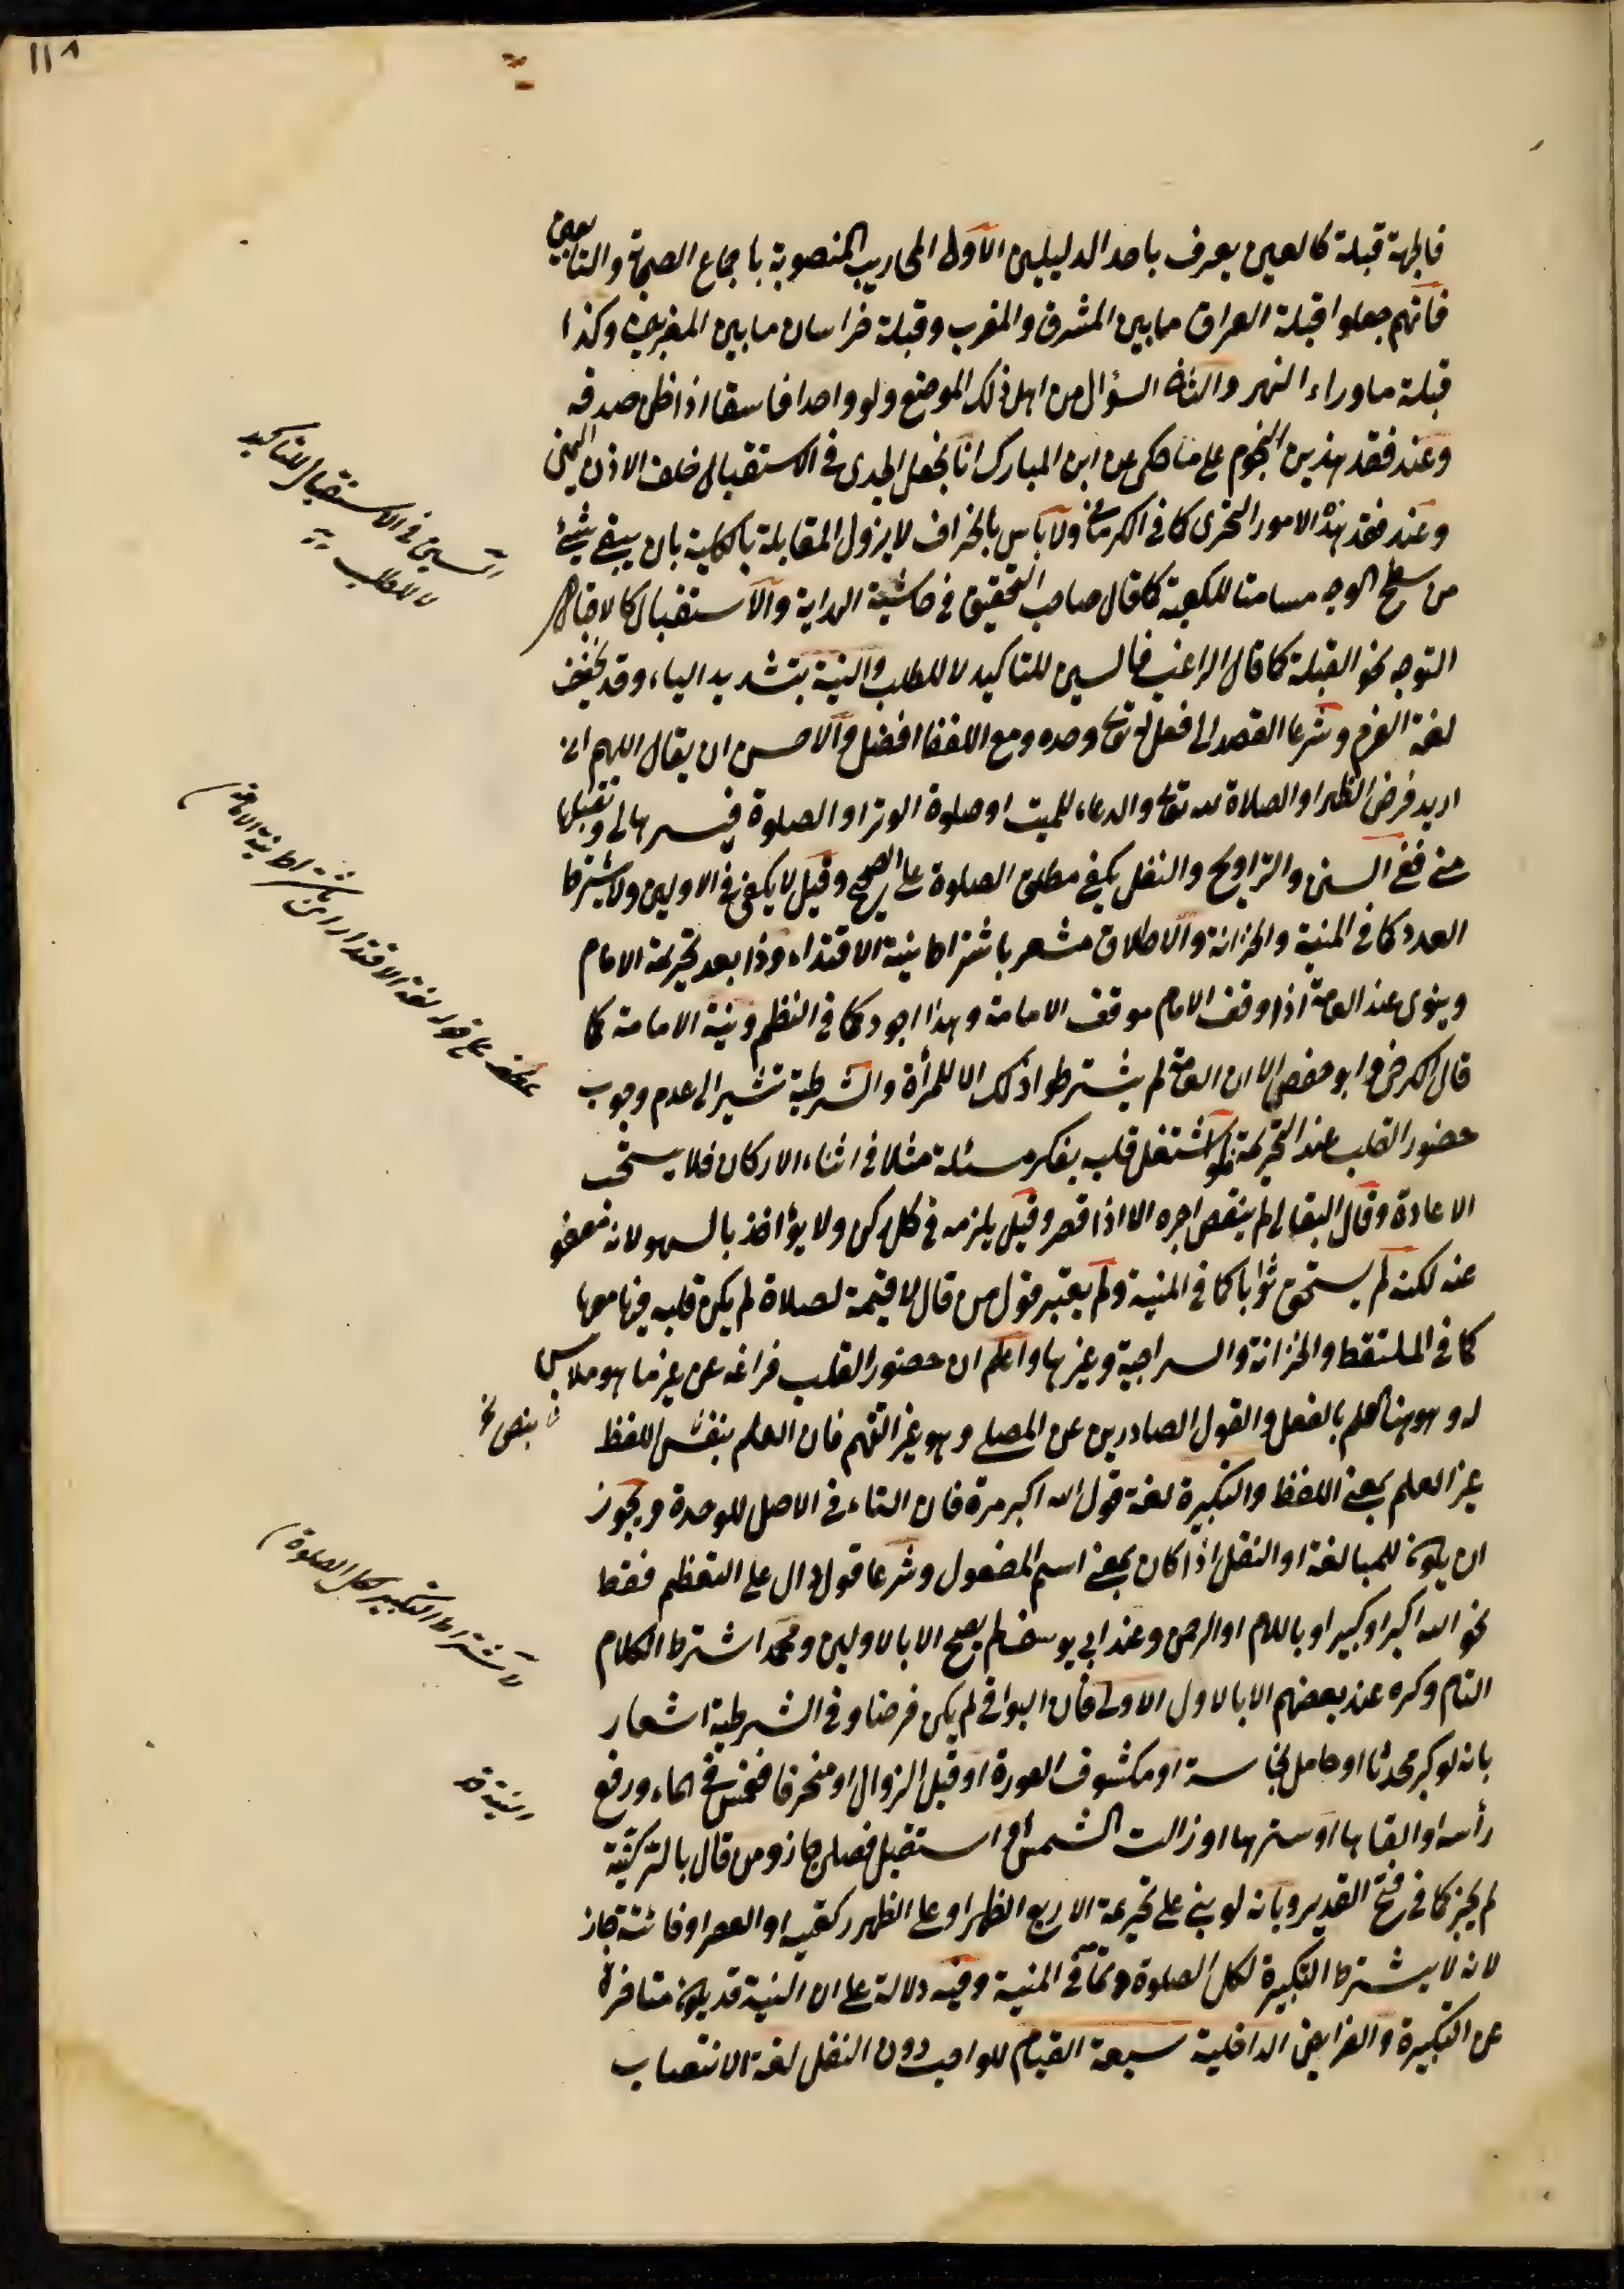 ١١٨
فالجهة قبلة كالعين يعرف باحد الدليلين الاول المحاريب المنصوبة باجماع الصحابة والتابعين
فانهم جعلوا قبلة العراق مابين المشرق والمغرب وقبلة خراسان مابين المغربين وكذا
قبلة ماوراء النهر والثاني السؤال من اهل ذلك الموضع ولو واحدا فاسقا اذا ظن صدقه
وعند فقد هذين النجوم على ما حكى عن ابن المبارك انا نجعل الجدى فى الاستقبال خلف الاذن اليمنى
وعند فقد هذه الامور التحرى كما فى الكرمانى ولا بأس بانحراف لا يزول المقابلة بالكلية بان يبقى شئ
من سطح الوجه مسامتا للكعبة كما قال صاحب التحقيق فى حاشية الهداية والاستقبال كالاقبال
التوجه نحو القبلة كما قال الراغب فالسين للتاكيد لا للطلب والنية بتشديد الياء وقد يخفف
لغة العزم وشرعا القصد الى فعل لله تعالى وحده ومع اللفظ افضل والاحسن ان يقال اللهم انى
اريد فرض الظهر او الصلاة لله تعالى والدعاء للميت او صلوة الوتر او الصلوة فيسرها لى وتقبلها
منى ففى السنن والتراويح والنفل يكفى مطلق الصلوة على الصحيح وقيل لا يكفى فى الاولين ولا يشترط
العدد كما فى المنية والخزانة والاطلاق مشعر باشتراط نية الاقتداء وذا بعد تحريمة الامام
وينوى عند العامة اذا وقف الامام موقف الامامة وهذا اجود كما فى النظم ونية الامامة كما
قال الكرخى وابو حفص الا ان العامة لم يشترطوا ذلك الا للمرأة والشرطية تشير الى عدم وجوب
حضور القلب عند التحريمة فلو اشتغل قلبه بفكر مسئلة مثلا فى اثناء الاركان فلا يستحب
الاعادة وقال البقالى لم ينقص اجره الا اذا قصر وقيل يلزمه فى كل ركن ولا يؤاخذ بالسهو لانه معفو
عنه لكنه لم يستحق ثوابا كما فى المنية ولم يعتبر قول من قال لا قيمة لصلاة لم يكن قلبه فيها معها
كما فى الملتقط والخزانة والسراجية وغيرها واعلم ان حضور القلب فراغه عن غير ما هو ملابس
له وهو ههنا العلم بالفعل والقول الصادرين عن المصلى وهو غير التفهم فان العلم بنفس اللفظ
غير العلم بمعنى اللفظ والتكبيرة لغة قول الله اكبر مرة فان التاء فى الاصل للوحدة ويجوز
ان يكون للمبالغة او النقل اذا كان بمعنى اسم المفعول وشرعا قول دال على التعظيم فقط
نحو الله اكبر او كبير او باللام او الرحمن وعند ابى يوسف لم يصح الا بالاولين ومحمد اشترط الكلام
التام وكره عند بعضهم الا بالاول الاولى فان البواقى لم يكن فرضا وفى الشرطية اشعار
بانه لو كبر محدثا او حامل نجاسة او مكشوف العورة او قبل الزوال او منحرفا فغمس فى الماء ورفع
رأسه او القاها او سترها او زالت الشمس او استقبل فصلى جاز ومن قال بالركنية
لم يجز كما فى فتح القدير وبانه لو بنى على تحريمة الاربع الظهر او على الظهر ركعتيه او العصر او فائتة جاز
لانه لا يشترط التكبيرة لكل الصلوة كما فى المنية وفيه دلالة على ان النية قد يكون متاخرة
عن التكبيرة والفرايض الداخلية سبعة القيام للواجب دون النفل لغة الانتصاب
السين فى الاستقبال للتاكيد
لا للطلب
عطف على قوله لغة الاقتداء اى باشتراط نية الامامة
بنص نخ
لا اشتراط التكبير لكل الصلوة